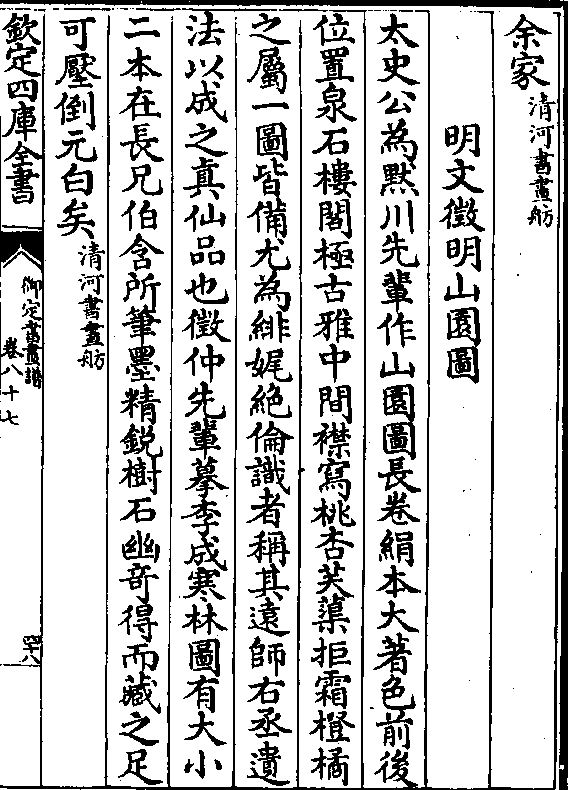 余家清河書畫舫
明文徵明山園圖
太史公為默川先輩作山園圖長卷絹本大著色前後
位置泉石樓閣極古雅中間襟寫桃杏芙蕖拒霜橙橘
之屬一圖皆備尤為緋娓絶倫識者稱其遠師右丞遺
法以成之真仙品也徵仲先輩摹李成寒林圖有大小
二本在長兄伯含所筆墨精銳樹石幽竒得而藏之足
可壓倒元白矣清河書畫舫
欽定四庫全書
御定書畫譜
卷八十七
四八